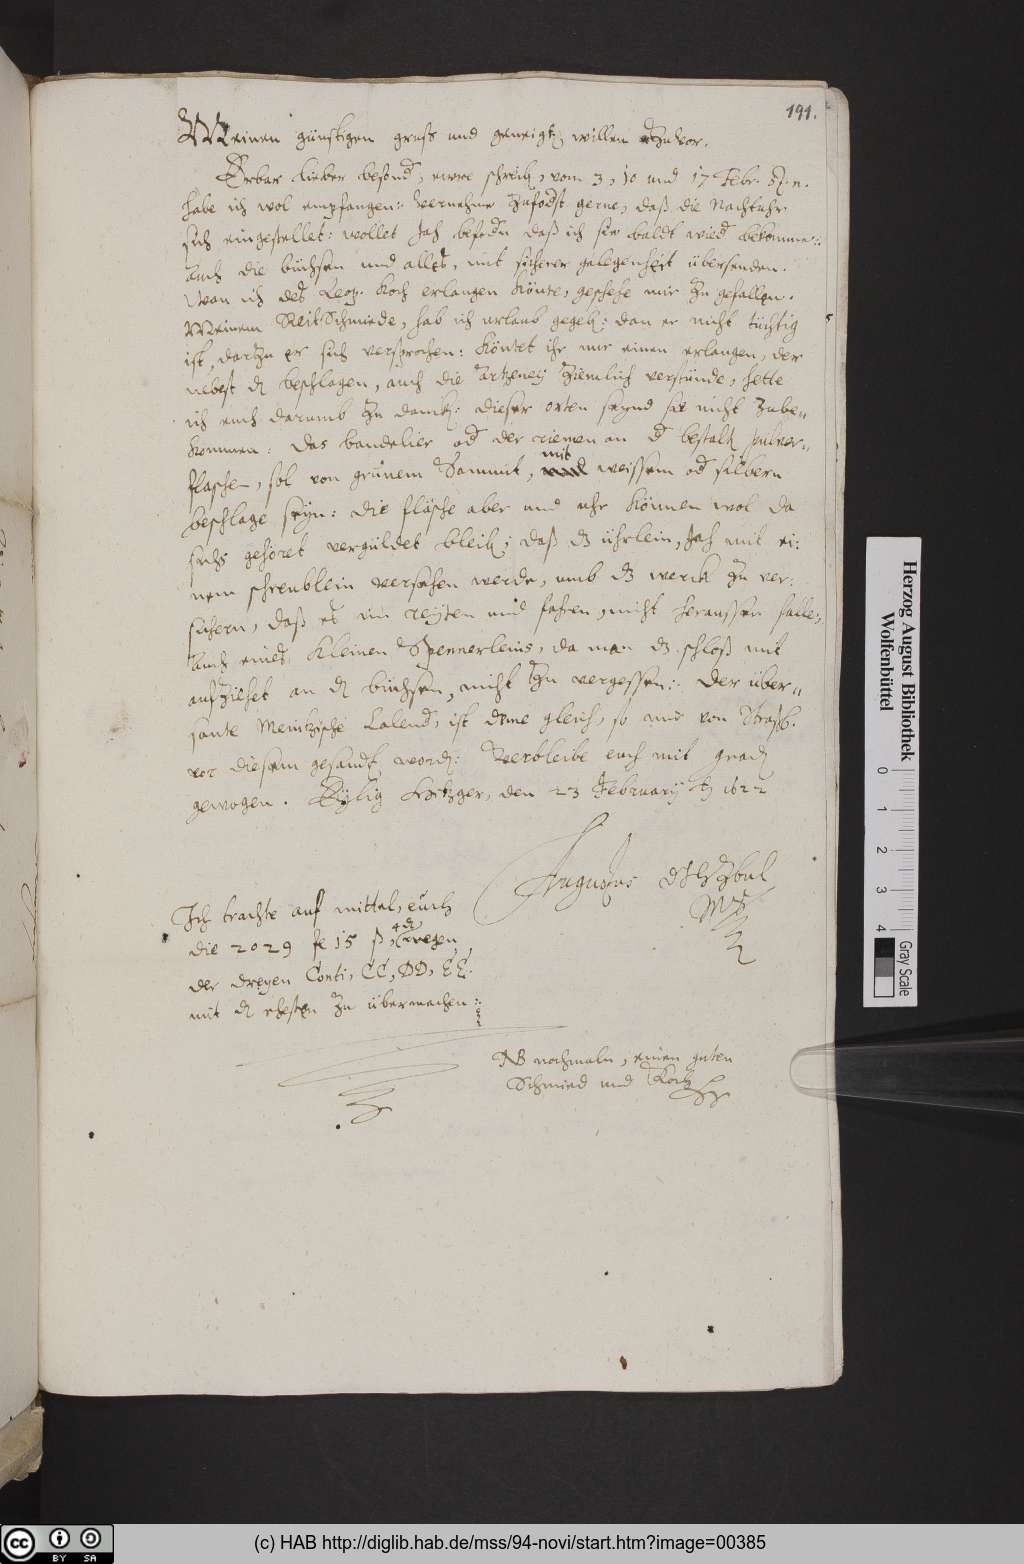 191.
Meinen günstigen gruß und geneigten willen zuvor.
Erbar lieber besonder, ewre schreiben, vom 3, 10 und 17 Febr. st. n.
habe ich wol empfangen: vernehme zufoderst gerne, daß die Nachtuhr
sich eingestellet: wollet Jah befodern daß ich sie baldt wieder bekomme:
Auch die büchsen und alles, mit sicherer gelegenheit übersenden.
Wan ich des Leop. Koch erlangen könte, geschehe mir zu gefallen.
Meinem ReitSchmiede, hab ich urlaub gegeben: dan er nicht tüchtig
ist, dartzu er sich versprochen: Köntet ihr mir einen erlangen, der
nebest dem beschlagen, auch die Artzeney ziemlich verstünde, hette
ich euch darumb zu dancken: dieser orten seynd sie nicht zube-
kommen: Das bandelier oder der riemen an der bestalten pulver-
flasche, sol von grünem Sammit, mit weissem oder silbern
beschlage seyn: die flasche aber und uhr können wol da
sichs gehöret vergüldet bleiben: daß das ührlein, Jah mit ei-
nem schreublein versehen werde, umb das werck zu ver-
sichern, daß es im reyten und fahren, nicht heraussen falle,
Auch eines kleinen Spennerleins, da man das schloß mit
aufziehet an den büchsen, nicht zu vergessen: Der über-
sante Meintzische Calender, ist deme gleich, so mir von Strasb.
vor diesem gesandt worden: Verbleibe euch mit gnaden
gewogen. Eylig Hitzger, den 23 February A 1622
Augustus DJHZBUL
Mpp
Ich trachte auf mittel, euch
die 2029 fl 15 ß, 4 d wegen
der dreyen Conti, CC, DD, EE.
mit dem ehesten zu übermachen:
NB nochmaln, einen guten
Schmied und Koch
Herzog August Bibliothek
Wolfenbüttel
0 1 2 3 4
Gray Scale
cc BY SA
(c) HAB http://diglib.hab.de/mss/94-novi/start.htm?image=00385